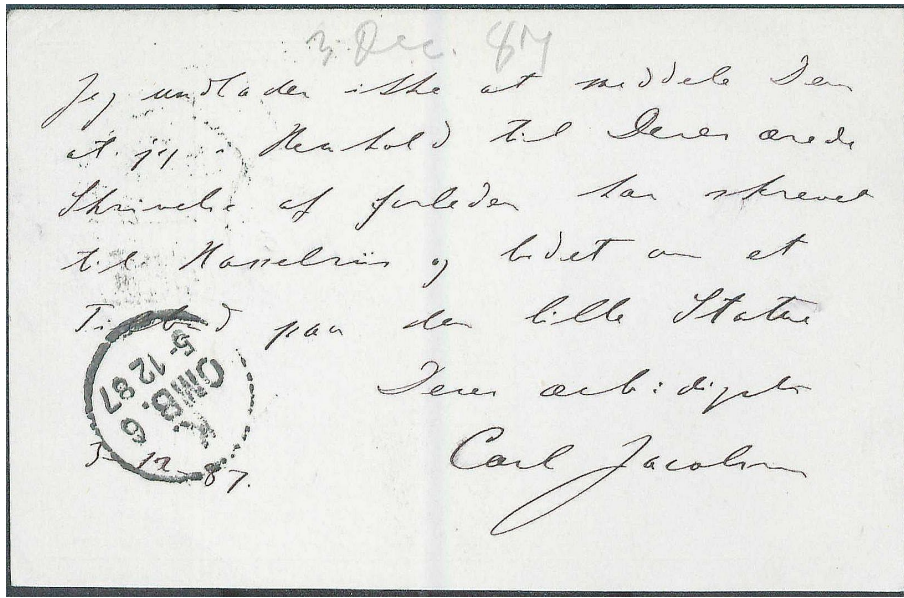 3 Dec. 87
Jeg undlader ikke at meddele Dem
at jeg i Henhold til Deres ærede
Skrivelse af forleden har skrevet
til Hasselriis og bedet om et
Tilbud paa den lille Statue
Deres ærbødigste
Carl Jacobsen
3-12-87.
K.
OMB. 6
5-12 87